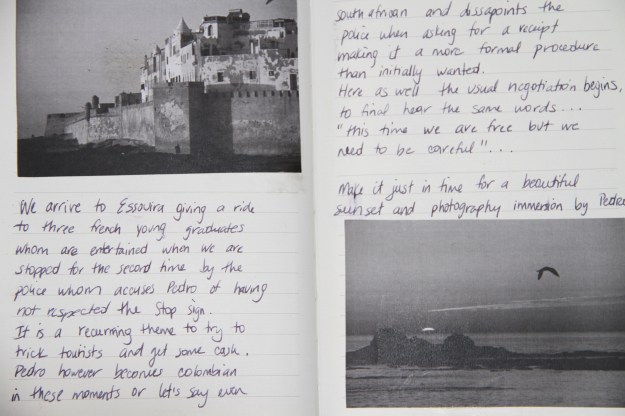 We arrive to Essouira giving a ride
to three french young graduates
whom are entertained when we are
stopped for the second time by the
police whom accuses Pedro of having
not respected the Stop sign.
It is a recurring theme to try to
trick tourists and get some cash.
Pedro however becomes colombian
in these moments or let's say even
south african and dissapoints the
police when asking for a receipt
making it a more formal procedure
than initially wanted.
Here as well the usual negotiation begins,
to final hear the same words...
"this time we are free but we
need to be careful"...
Make it just in time for a beautiful
sunset and photography immertion by Pedro